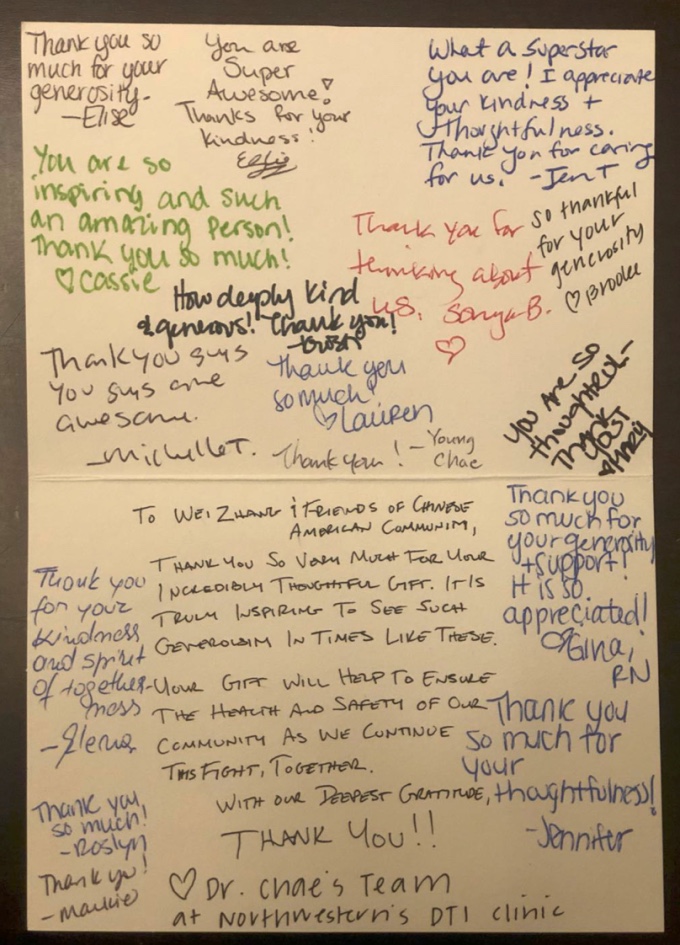 Thank you so
much for your
generosity.
—Elise
You are
Super
Awesome!
Thanks for your
kindness!
What a superstar
you are! I appreciate
your kindness +
thoughtfulness.
Thank you for caring
for us. -Jen T
You are so
inspiring and such
an amazing person!
Thank you so much!
♡ Cassie
Thank you for
thinking about
us. Sonya B.
♡
so thankful
for your
generosity
♡ Brooke
How deeply kind
& generous! Thank you!
Thank you guys
you guys are
awesome.
—Michelle T.
Thank you
so much!
♡ Lauren
Thank you! — Young
Chae
You are so
thoughtful—
Thank
you!
To Wei Zhang & Friends of Chinese
American Community,
Thank You So Very Much For Your
Incredibly Thoughtful Gift. It Is
Truly Inspiring To See Such
In Times Like These.
Your Gift Will Help To Ensure
The Health And Safety of Our
Community As We Continue
This Fight, Together.
With our Deepest Gratitude,
THANK YOU!!
♡ Dr. Chae's Team
at Northwestern's DTI clinic
Thank you
so much for
your generosity
+ support!
It is so
appreciated!
♡ Gina,
RN
Thank you
for your
kindness
and spirit
of together-
ness
—Elena
Thank you
so much for
your
thoughtfulness!
-Jennifer
Thank you,
so much!
-Roslyn
Thank you!